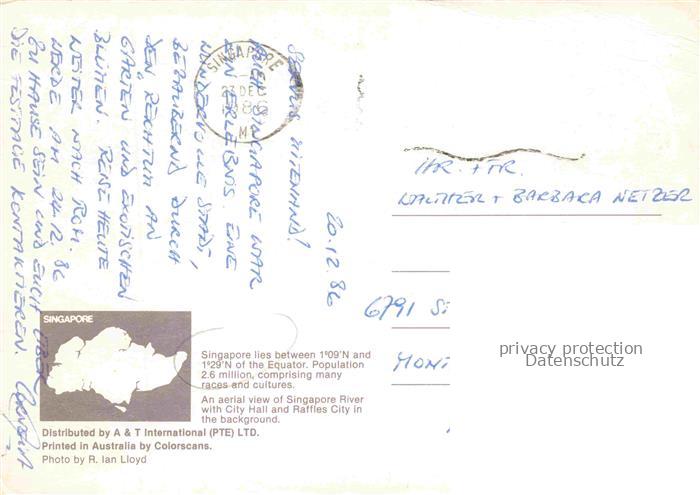 20.12.86
SERVUS MITEINAND!
AUCH SINGAPORE WAR
EIN ERLEBNIS. EINE
WUNDERVOLLE STADT,
BEZAUBERND DURCH
DEN REICHTUM AN
GÄRTEN UND EXOTISCHEN
BLÜTEN. REISE HEUTE
WEITER NACH ROM.
WERDE AM 24.12.86
ZU HAUSE SEIN UND EUCH ÜBER
DIE FESTTAGE KONTAKTIEREN.
SINGAPORE
23 DEC
1986
HR. + FR.
WALTHER + BARBARA NETZER
6791
privacy protection
Datenschutz
SINGAPORE
Singapore lies between 1º09'N and
1º29'N of the Equator. Population
2.6 million, comprising many
races and cultures.
An aerial view of Singapore River
with City Hall and Raffles City in
the background.
Distributed by A & T International (PTE) LTD.
Printed in Australia by Colorscans.
Photo by R. Ian Lloyd